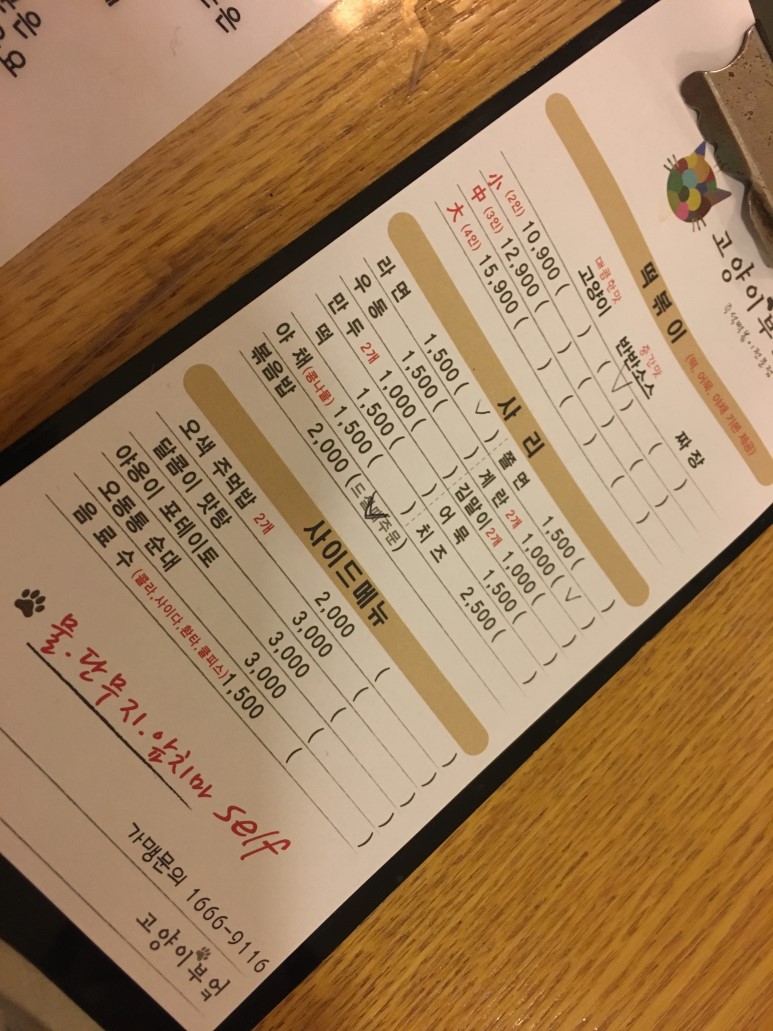 고양이부
떡볶이 (떡, 어묵, 야채 기본 제공)
대콤한맛 중간맛
고양이 반반소스 짜장
小 (2인) 10,900 ( ) ( ✓ ) ( )
中 (3인) 12,900 ( ) ( ) ( )
大 (4인) 15,900 ( ) ( ) ( )
사 리
라 면 1,500 ( ✓ ) 쫄 면 1,500 ( )
우 동 1,500 ( ) 계 란 2개 1,000 ( ✓ )
만 두 2개 1,000 ( ) 김말이 2개 1,000 ( )
떡 1,500 ( ) 어 묵 1,500 ( )
야 채 (콩나물) 1,500 ( ) 치 즈 2,500 ( )
볶음밥 2,000 (드실때주문)
사이드메뉴
오색 주먹밥 2개 2,000 ( )
달콤이 맛탕 3,000 ( )
야옹이 포테이토 3,000 ( )
오동통 순대 3,000 ( )
음 료 수 (콜라,사이다,환타,쿨피스) 1,500 ( )
물.단무지.앞치마 self
가맹문의 1666-9116
고양이부엌